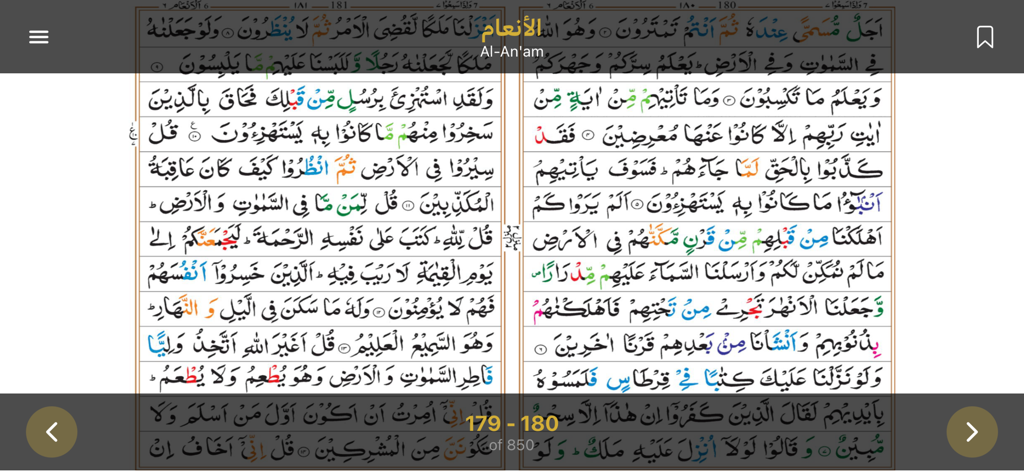 الأنعام
Al-An'am
180
اَجَلٌ مُّسَمًّی عِنْدَهٗ ثُمَّ اَنْتُمْ تَمْتَرُوْنَ ۲ وَهُوَ اللّٰهُ
فِی السَّمٰوٰتِ وَفِی الْاَرْضِ ؕ یَعْلَمُ سِرَّكُمْ وَجَهْرَكُمْ
وَیَعْلَمُ مَا تَكْسِبُوْنَ ۳ وَمَا تَاْتِیْهِمْ مِّنْ اٰیَةٍ مِّنْ
اٰیٰتِ رَبِّهِمْ اِلَّا كَانُوْا عَنْهَا مُعْرِضِیْنَ ۴ فَقَدْ
كَذَّبُوْا بِالْحَقِّ لَمَّا جَآءَهُمْ ؕ فَسَوْفَ یَاْتِیْهِمْ
اَنْۢبٰٓؤُا مَا كَانُوْا بِهٖ یَسْتَهْزِءُوْنَ ۵ اَلَمْ یَرَوْا كَمْ
اَهْلَكْنَا مِنْ قَبْلِهِمْ مِّنْ قَرْنٍ مَّكَّنّٰهُمْ فِی الْاَرْضِ
مَا لَمْ نُمَكِّنْ لَّكُمْ وَاَرْسَلْنَا السَّمَآءَ عَلَیْهِمْ مِّدْرَارًا ۪
وَّجَعَلْنَا الْاَنْهٰرَ تَجْرِیْ مِنْ تَحْتِهِمْ فَاَهْلَكْنٰهُمْ
بِذُنُوْبِهِمْ وَاَنْشَاْنَا مِنْۢ بَعْدِهِمْ قَرْنًا اٰخَرِیْنَ ۶
وَلَوْ نَزَّلْنَا عَلَیْكَ كِتٰبًا فِیْ قِرْطَاسٍ فَلَمَسُوْهُ
بِاَیْدِیْهِمْ لَقَالَ الَّذِیْنَ كَفَرُوْۤا اِنْ هٰذَاۤ اِلَّا سِحْرٌ
مُّبِیْنٌ ۷ وَقَالُوْا لَوْلَاۤ اُنْزِلَ عَلَیْهِ مَلَكٌ ؕ وَلَوْ
181
اَنْزَلْنَا مَلَكًا لَّقُضِیَ الْاَمْرُ ثُمَّ لَا یُنْظَرُوْنَ ۸ وَلَوْ جَعَلْنٰهُ
مَلَكًا لَّجَعَلْنٰهُ رَجُلًا وَّلَلَبَسْنَا عَلَیْهِمْ مَّا یَلْبِسُوْنَ ۹
وَلَقَدِ اسْتُهْزِئَ بِرُسُلٍ مِّنْ قَبْلِكَ فَحَاقَ بِالَّذِیْنَ
سَخِرُوْا مِنْهُمْ مَّا كَانُوْا بِهٖ یَسْتَهْزِءُوْنَ ۱۰ قُلْ
سِیْرُوْا فِی الْاَرْضِ ثُمَّ انْظُرُوْا كَیْفَ كَانَ عَاقِبَةُ
الْمُكَذِّبِیْنَ ۱۱ قُلْ لِّمَنْ مَّا فِی السَّمٰوٰتِ وَالْاَرْضِ ؕ
قُلْ لِّلّٰهِ ؕ كَتَبَ عَلٰی نَفْسِهِ الرَّحْمَةَ ؕ لَیَجْمَعَنَّكُمْ اِلٰی
یَوْمِ الْقِیٰمَةِ لَا رَیْبَ فِیْهِ ؕ اَلَّذِیْنَ خَسِرُوْۤا اَنْفُسَهُمْ
فَهُمْ لَا یُؤْمِنُوْنَ ۱۲ وَلَهٗ مَا سَكَنَ فِی الَّیْلِ وَالنَّهَارِ ؕ
وَهُوَ السَّمِیْعُ الْعَلِیْمُ ۱۳ قُلْ اَغَیْرَ اللّٰهِ اَتَّخِذُ وَلِیًّا
فَاطِرِ السَّمٰوٰتِ وَالْاَرْضِ وَهُوَ یُطْعِمُ وَلَا یُطْعَمُ ؕ
قُلْ اِنِّیْۤ اُمِرْتُ اَنْ اَكُوْنَ اَوَّلَ مَنْ اَسْلَمَ وَلَا
تَكُوْنَنَّ مِنَ الْمُشْرِكِیْنَ ۱۴ قُلْ اِنِّیْۤ اَخَافُ اِنْ
179 - 180
of 850